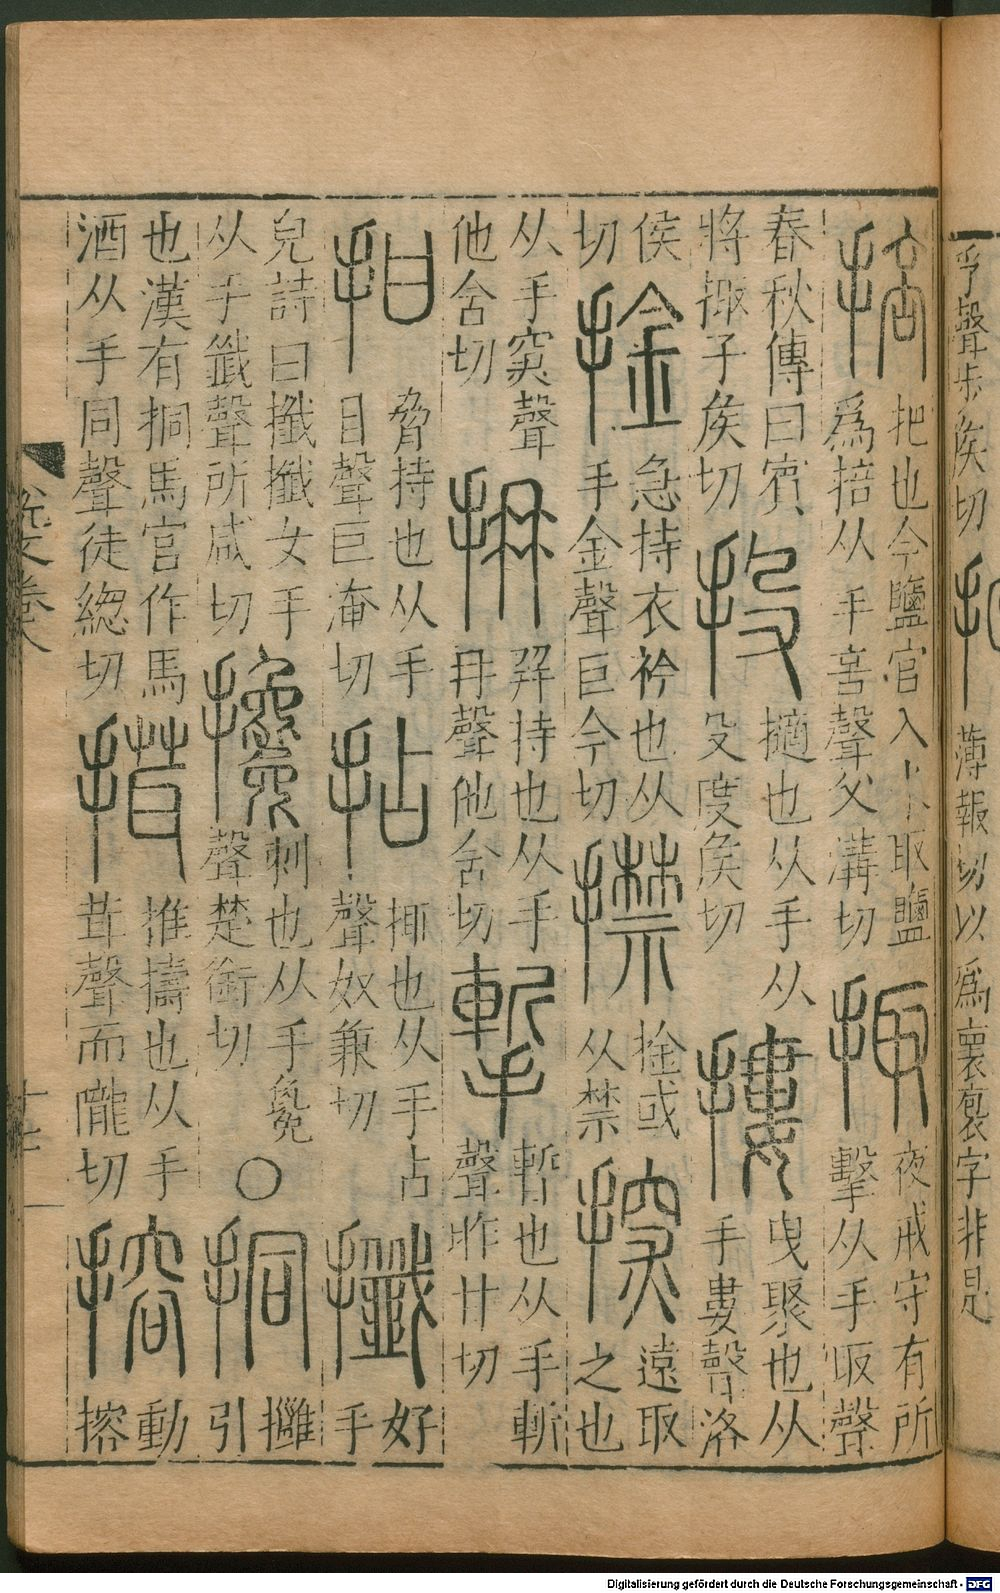 孚聲步矦切
薄報切以爲褱袌字非是
掊
把也今鹽官入水取鹽
爲掊从手咅聲父溝切
掫
夜戒守有所
擊从手取聲
春秋傳曰賓
將掫子矦切
投
擿也从手从
殳度矦切
摟
曳聚也从
手婁聲洛
侯
切
捦
急持衣衿也从
手金聲巨今切
㩒
捦或
从禁
撢
遠取
之也
从手覃聲
他含切
抩
幷持也从手
冄聲他含切
暫也从手斬
聲昨甘切
拑
脅持也从手
甘聲巨淹切
拈
㧖也从手占
聲奴兼切
攕
好
手
皃詩曰攕攕女手
从手韱聲所咸切
攙
刺也从手毚
聲楚銜切
○
挏
攤
引
也漢有挏馬官作馬
酒从手同聲徒緫切
推擣也从手
茸聲而隴切
搈
動
搈
說文卷八
十七
Digitalisierung gefördert durch die Deutsche Forschungsgemeinschaft - DFG